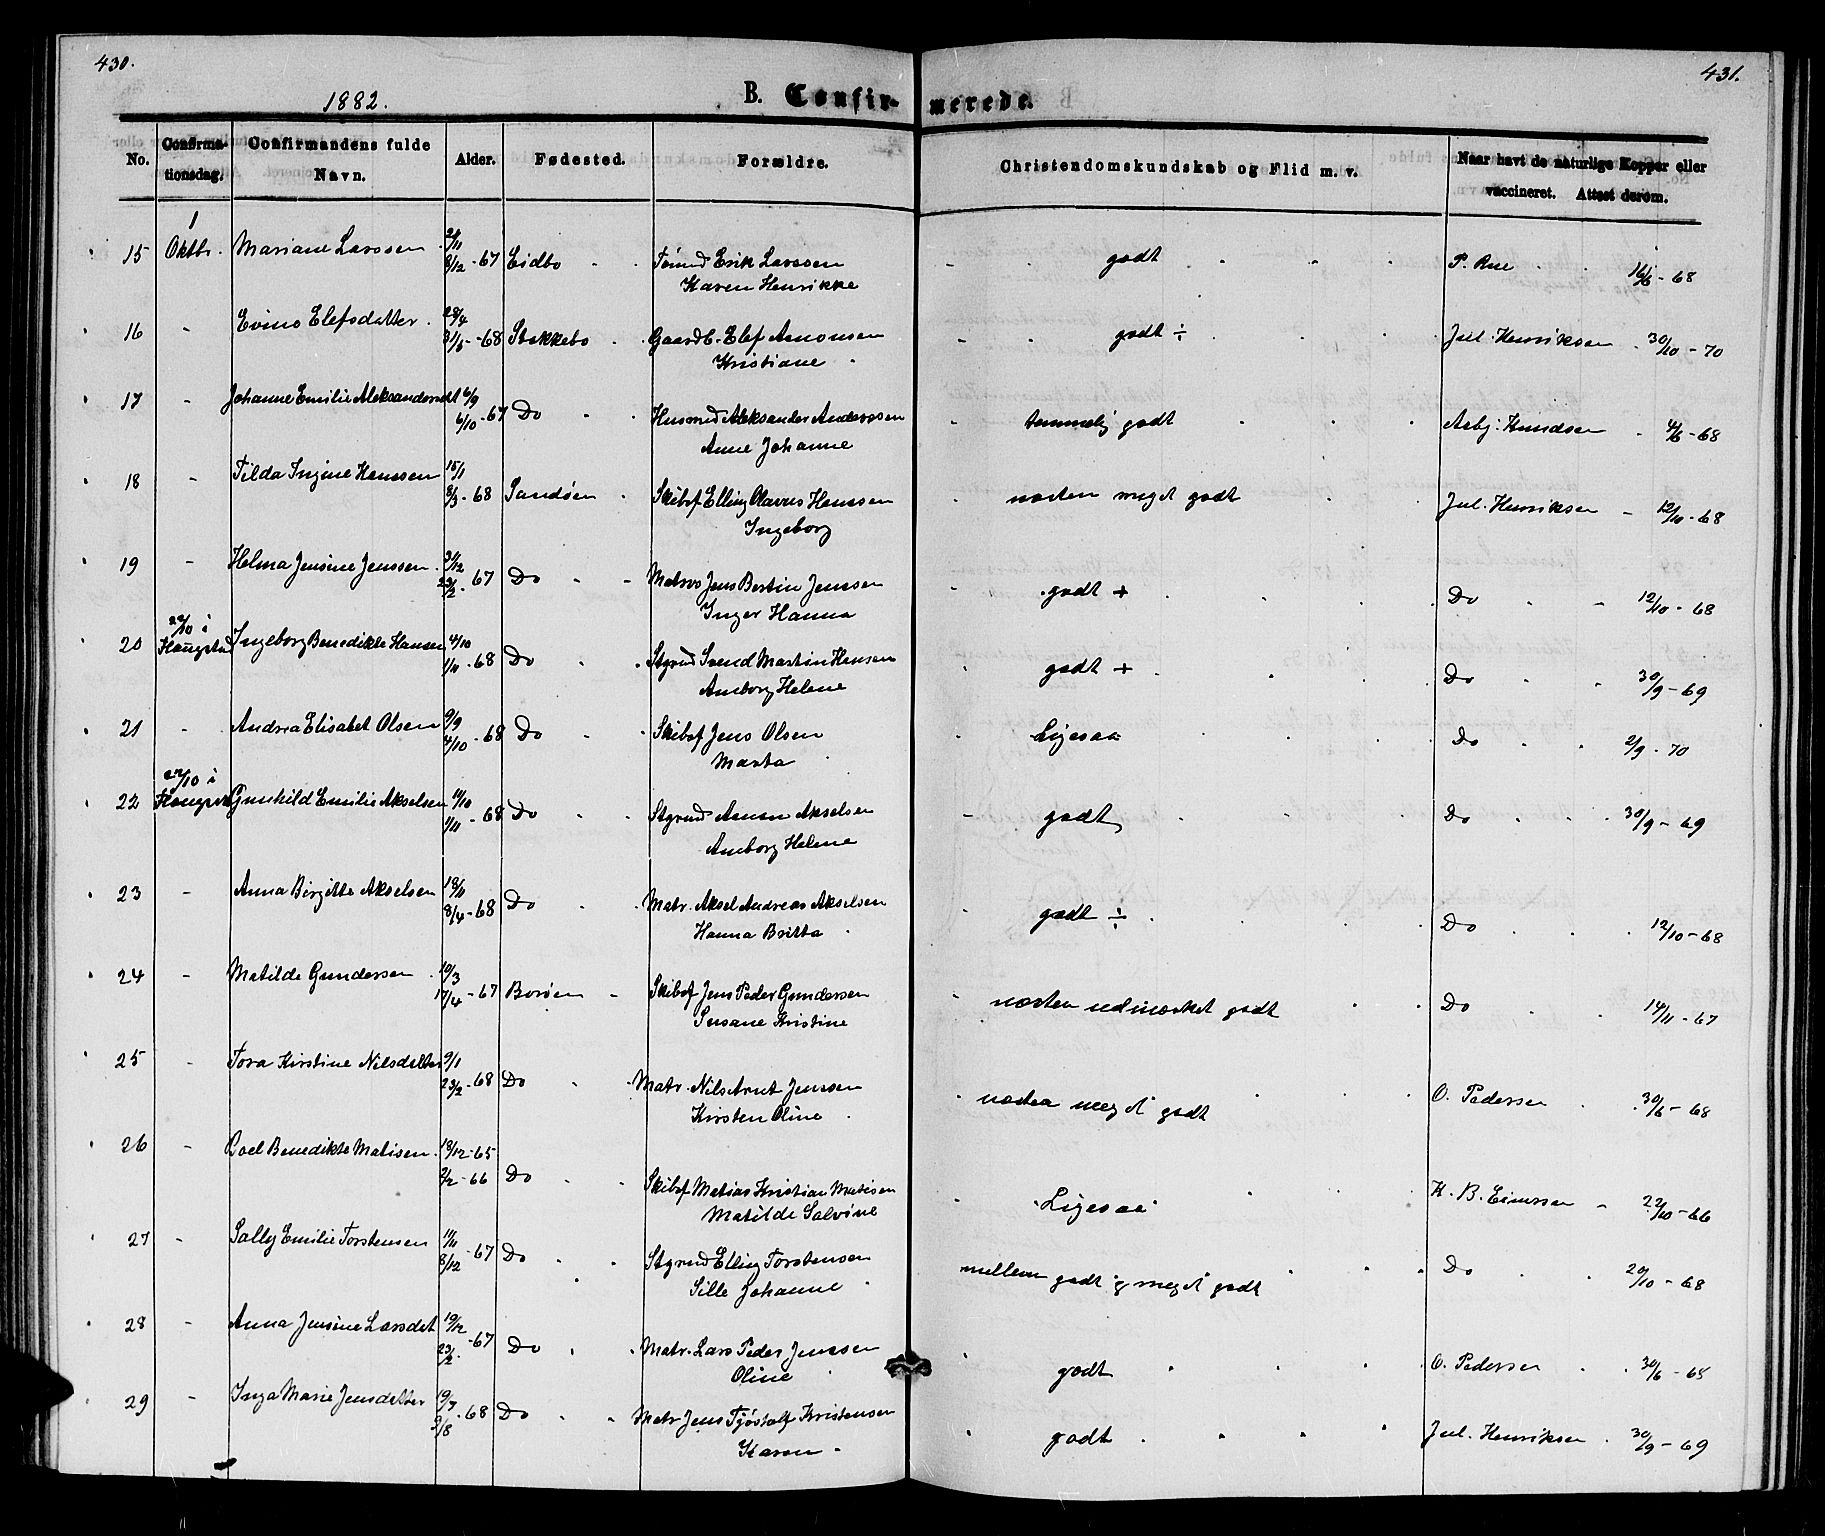 430.
431.
1882.
B. Confir-
merede.
No.
Confirma-
tionsdag.
Confirmandens fulde
Navn.
Alder.
Fødested.
Forældre.
Christendomskundskab og Flid m. v.
Naar havt de naturlige Kopper eller
vaccineret. Attest derom.
1
15 Oktbr. Mariane Larssen 8/12 - 67 Eidbo Erik Larssen godt P. Rue 16/6 - 68
Karen Henrikke
16 - Evine Elefsdatter 28/4
- 68 Stokkebo Gaardb. Elef Asmonsen godt ÷ Jul. Henriksen 30/10 - 70
Kristiane
17 - Johanne Emilie Aleksandersdt 6/9
6/10 - 67 Do Husmd Aleksander Anderssen temmelig godt Asbj. Knudsen 4/6 - 68
Anne Johanne
18 - Tilda Ingine Hanssen 15/1
8/3 - 68 Sandøen Skibsf Elling Olavus Hanssen næsten meget godt Jul. Henriksen - 12/10 - 68
Ingeborg
19 - Helma Jensine Jenssen 31/12
23/2 - 67 Do Matros Jens Bertin Jenssen godt + Do 12/10 - 68
Inger Hanna
20 22/10 i Ingeborg Benedikte Hansen 4/10
1/11 - 68 Do Stgrmd Svend Martin Hansen godt + Do 30/9 - 69
Amborg Helene
21 - Andrea Elisabet Olsen 9/9
4/10 - 68 Do Skibsf Jens Olsen Ligesaa Do 2/9 - 70
Marta
22 22/10 i Gunhild Emilie Akselsen 11/10
1/11 - 68 Do Stgrmd Asmon Akselsen godt Do 30/9 - 69
Amborg Helene
23 - Anna Birgitte Akselsen 18/11
8/4 - 68 Do Matr. Aksel Andreas Akselsen godt ÷ Do 12/10 - 68
Hanna Britta
24 - Matilde Gundersen 10/3
17/4 - 67 Borøen Skibsf Jens Peder Gundersen næsten udmærket godt Do 14/11 - 67
Susane Kristine
25 - Tora Kirstine Nilsdatter 9/1
23/2 - 68 Do Matr. Nils Arnt Jenssen næsten meget godt O. Pedersen 30/6 - 68
Kirsten Oline
26 - Boel Benedikte Matisen 18/12 - 65
2/2 - 66 Do Skibsf Matias Kristian Matisen Ligesaa K. B. Einersen 22/10 - 66
Matilde Salvine
27 - Sally Emilie Torstensen 11/11
8/12 - 67 Do Stgrmd Elling Torstensen mellem godt og meget godt Do 20/10 - 68
Sille Johanne
28 - Anna Jensine Larsdat 19/12
23/2 - 67 Do Matr. Lars Peder Jenssen godt O. Pedersen 30/6 - 68
Oline
29 - Inga Marie Jensdatter 19/7
9/8 - 68 Do Matr Jens Tjøstolf Kristensen godt Jul. Henriksen 30/9 - 69
Karen